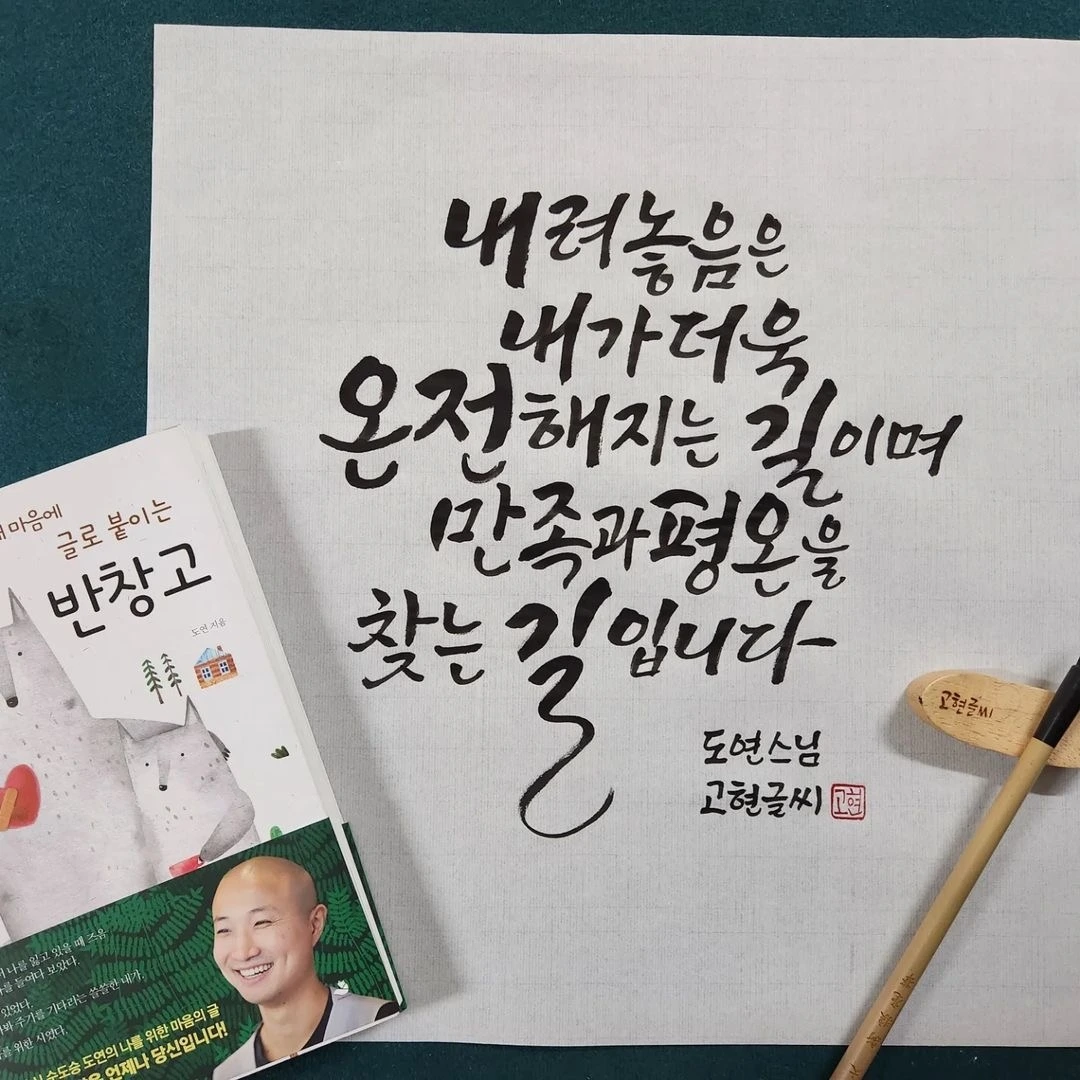 내려놓음은
내가 더욱
온전해지는 길이며
만족과 평온을
찾는 길입니다
도연스님
고현글씨
고현
고현글씨
마음에
글로 붙이는
반창고
도연 지음
나를 잃고 있을 때 즈음
들여다 보았다.
있었다.
주기를 기다리는 쓸쓸한 내가,
위한 시였다.
수도승 도연의 나를 위한 마음의 글
언제나 당신입니다!